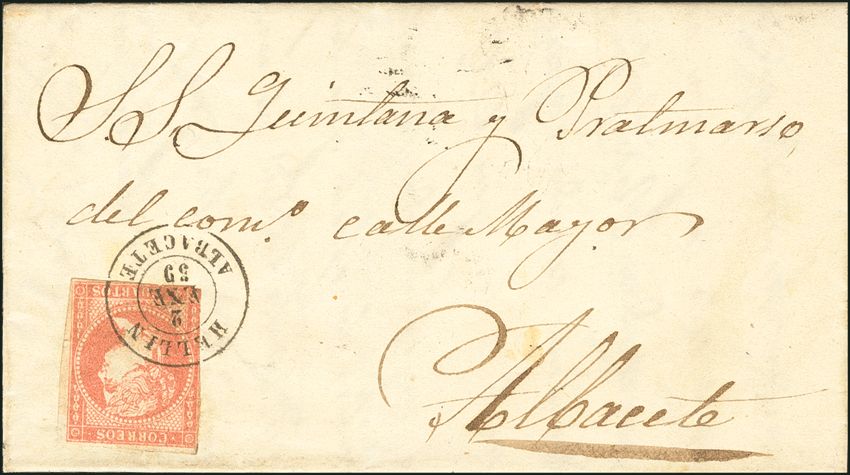 S.S. Quintana y Pratmarso,
del com.º calle Mayor
Albacete
HELLIN
2
ENE
59
ALBACETE
CUARTOS
CORREOS